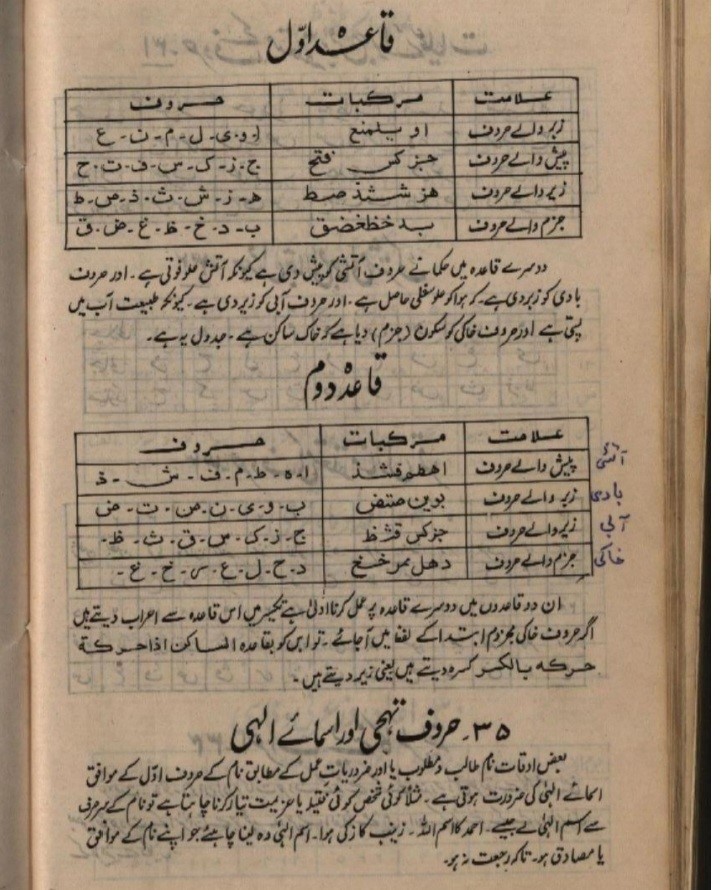 قاعدہ اوّل
علامت مرکبات حروف
زبر والے حروف او یلمنع ا۔و۔ی۔ل۔م۔ن۔ع
پیش والے حروف جزکس فتح ج۔ز۔ک۔س۔ف۔ت۔ح
زیر والے حروف ھز شثذ صط ھ۔ز۔ش۔ث۔ذ۔ص۔ط
جزم والے حروف بدخظغضق ب۔د۔خ۔ظ۔غ۔ض۔ق
دوسرے قاعدہ میں حکما نے حروف آتشی کو پیش دی ہے کیونکہ آتش علو فوتی ہے۔ اور حروف
بادی کو زبر دی ہے۔ کہ ہوا کو علو سفلی حاصل ہے۔ اور حروف آبی کو زیر دی ہے۔ کیونکہ طبیعت آب میں
پستی ہے اور حروف خاکی کو سکون (جزم) دیا ہے کہ خاک ساکن ہے۔ جدول یہ ہے۔
قاعدہ دوم
علامت مرکبات حروف
پیش والے حروف اھطمفشذ ا۔ہ۔ط۔م۔ف۔ش۔ذ آتشی
زبر والے حروف بوین صتض ب۔و۔ی۔ن۔ص۔ت۔ض بادی
زیر والے حروف جزکس قثظ ج۔ز۔ک۔س۔ق۔ث۔ظ۔ آبی
جزم والے حروف دحل عر خغ د۔ح۔ل۔ع۔ر۔خ۔غ۔ خاکی
ان دو قاعدوں میں دوسرے قاعدہ پر عمل کرنا اولیٰ ہے تکسیر میں اس قاعدہ سے اعراب دیتے ہیں
اگر حروف خاکی مجزوم ابتدا کے لفظ میں آ جائے۔ تو اس کو بقاعدہ الساکن اذا حرکة
حرکه بالکسر کسرہ دیتے ہیں یعنی زیر دیتے ہیں۔
۳۵۔ حروف تہجی اور اسمائے الٰہی
بعض اوقات نام طالب و مطلوب یا اور ضروریات عمل کے مطابق نام کے حروف اوّل کے موافق
اسمائے الٰہی کی ضرورت ہوتی ہے۔ مثلاً کوئی شخص کوئی فتیلہ یا عزیمت تیار کرنا چاہتا ہے تو نام کے سرحرف
سے اسم الٰہی لے جیسے۔ احمد کا اسم اللہ۔ زینب کا زکی ہوا۔ اسم الٰہی وہ لینا چاہئے جو اپنے نام کے موافق
یا مصادق ہو۔ تاکہ رجعت نہ ہو۔